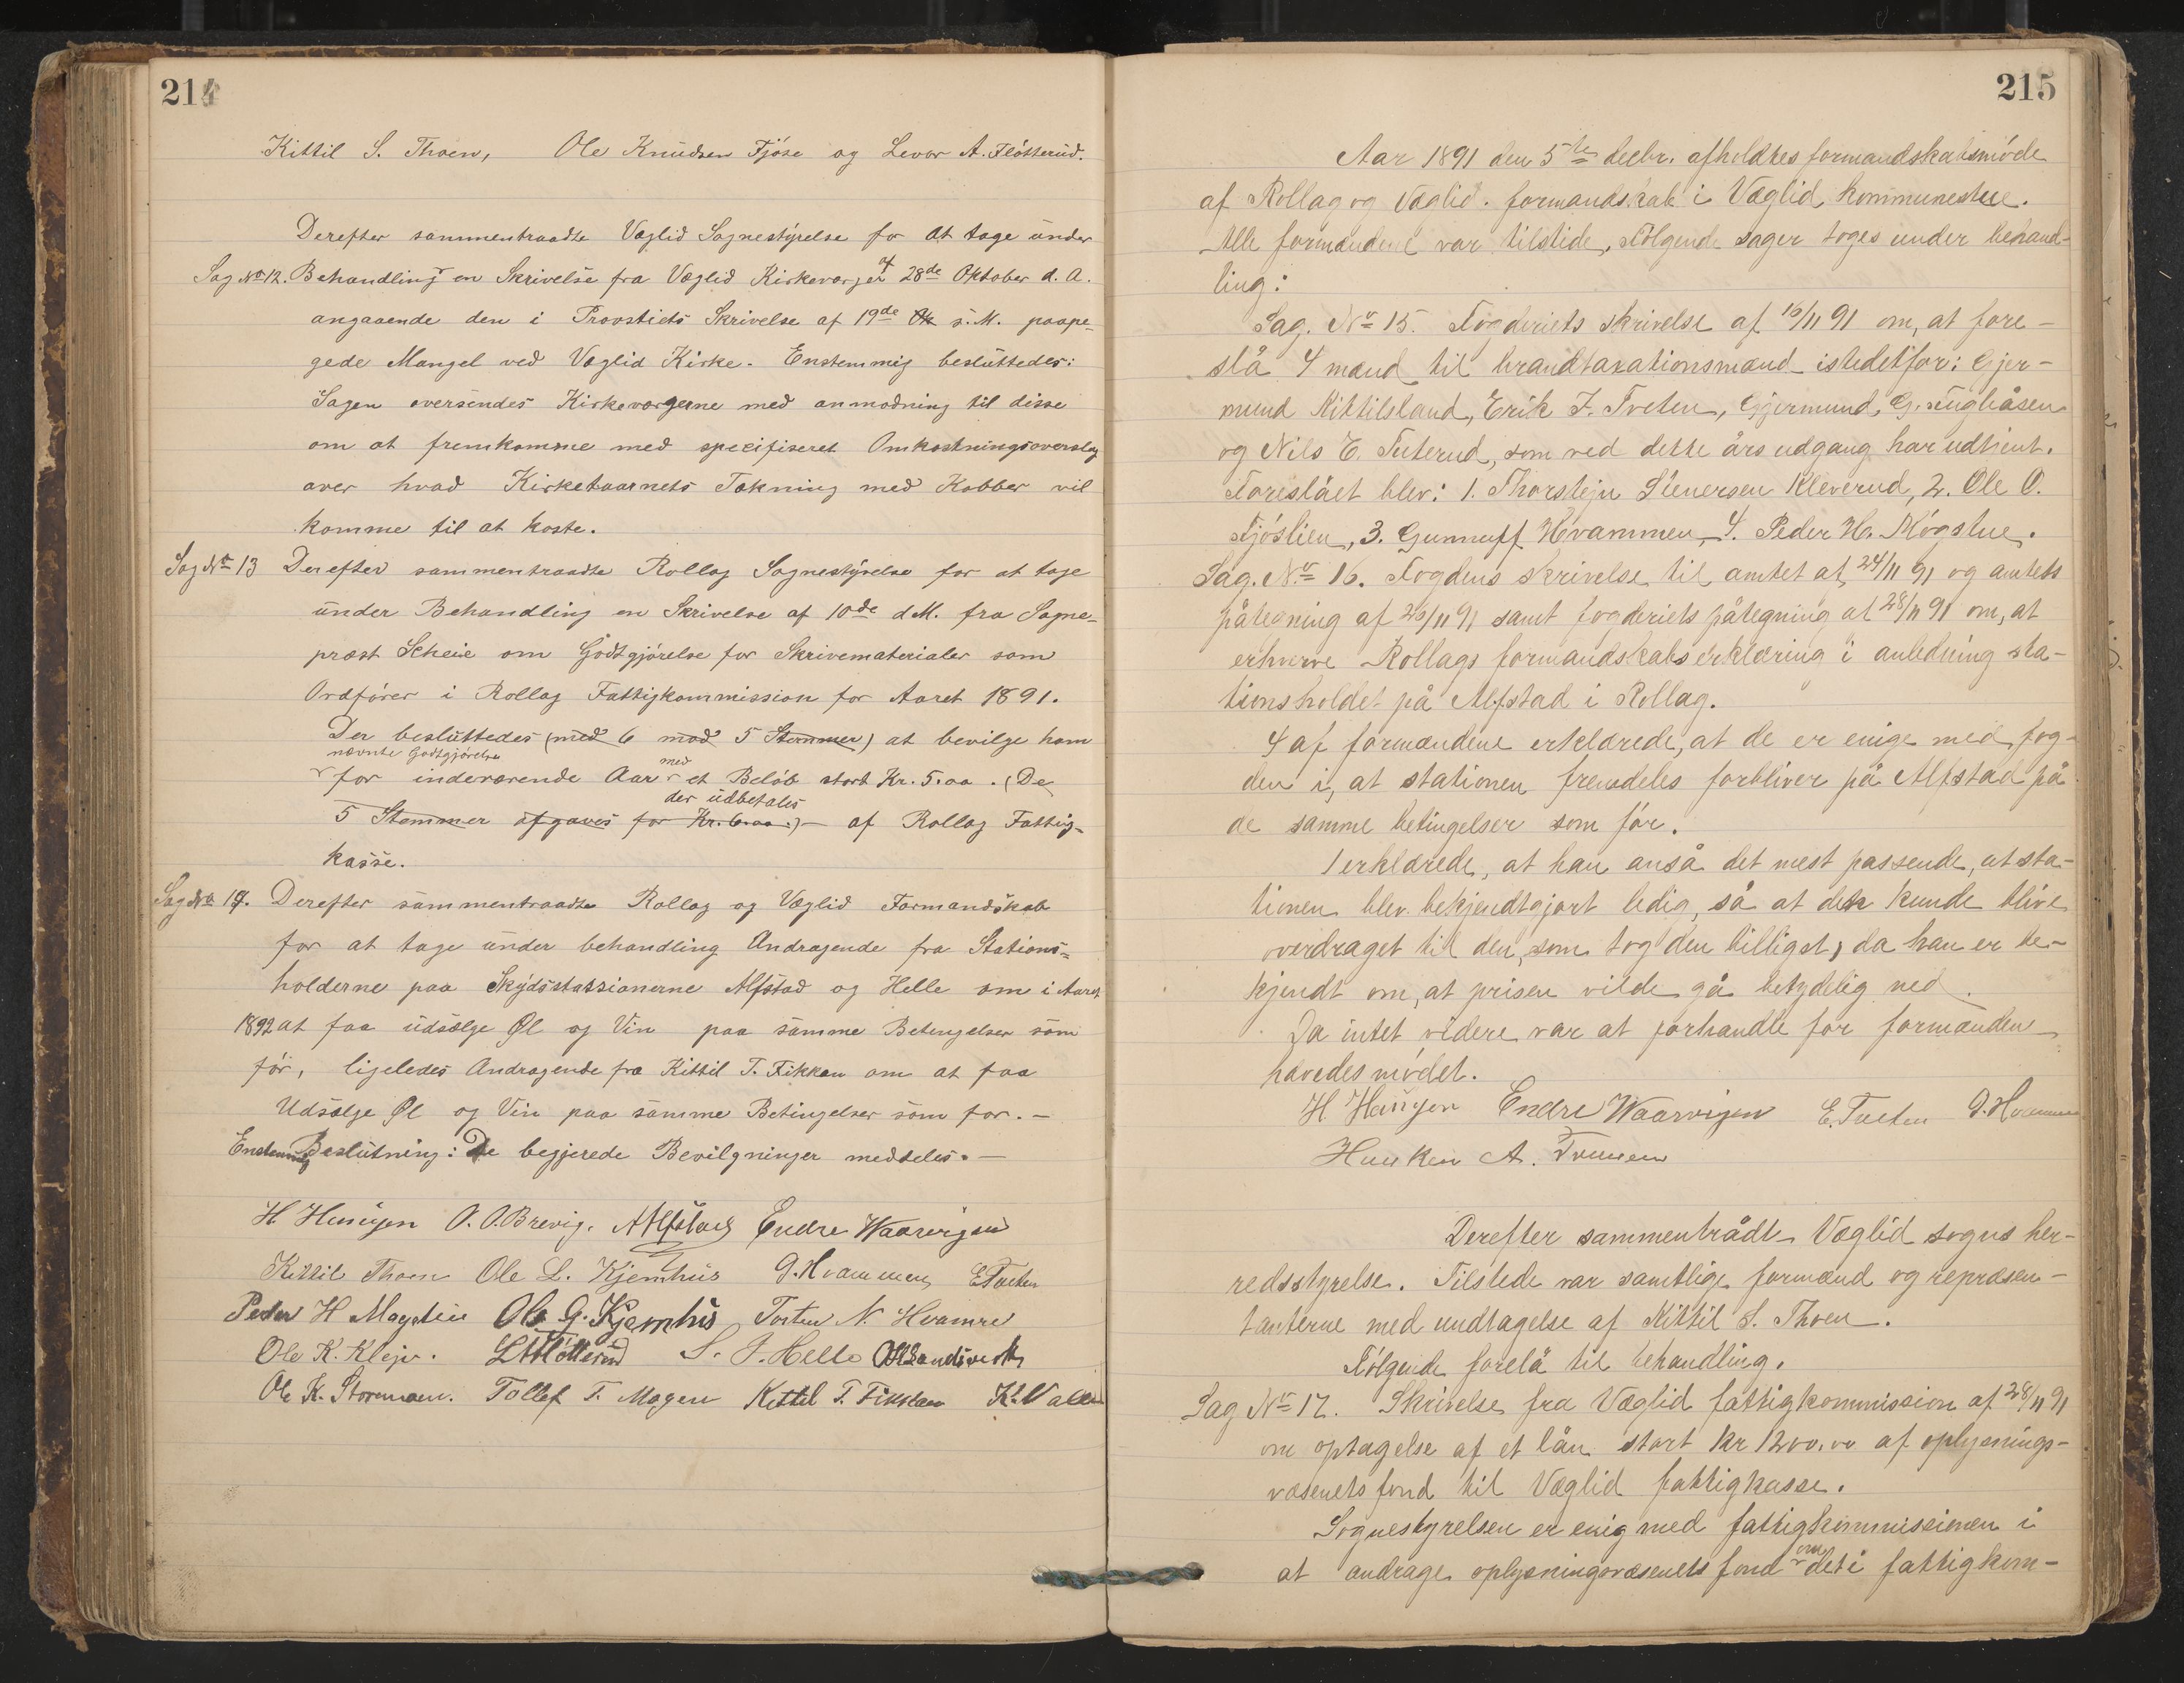 214
Kittil S. Thoen, Ole Knudsen Fjöse og Levor A. Flötterud.
Derefter sammentraadte Væglid Sognestyrelse for at tage under
Sag No 12. Behandling en Skrivelse fra Væglid Kirkeværger af 28de Oktober d. A.
angaaende den i Provstiets Skrivelse af 19de s. M. paape-
gede Mangel ved Væglid Kirke. Enstemmig besluttedes:
Sagen oversendes Kirkeværgerne med anmodning til disse
om at fremkomme med specifiseret Omkostningsoverslag
over hvad Kirketaarnets Tækning med Kobber vil
komme til at koste.
Sag No 13 Derefter sammentraadte Rollag Sognestyrelse for at tage
under Behandling en Skrivelse af 10de d. M. fra Sogne-
præst Scheie om Godtgjörelse for Skrivematerialer som
Ordförer i Rollag Fattigkommission for Aaret 1891.
Der besluttedes (med 6 mod 5 Stemmer) at bevilge ham
nævnte Godtgjörelse
for indeværende Aar med et Beløb stort Kr. 5.00. (De
5 Stemmer afgaves for Kr. 6.00.) der udbetales af Rollag Fattig-
kasse.
Sag No 14. Derefter sammentraadte Rollag og Væglid Formandskab
for at tage under behandling Andragende fra Stations-
holderne paa Skydsstassionerne Alfstad og Helle om i Aaret
1892 at faa udsælge Øl og Vin paa samme Betingelser som
för, ligeledes Andragende fra Kittil T. Fikkan om at faa
Udsælge Øl og Vin paa samme Betingelser som for. -
Enstemmig Beslutning: De begjerede Bevilgninger meddeles. -
O. O. Brevig. Alfstad Endre Waarvigen
Kittil Thoen Ole L. Kjemhus G. Hvammen E Tveten
Peder H Møgstue Ole G. Kjemhus Torsten N. Hvamre
Ole K. Klejv. LAFlötterud S. J. Helle
Ole K. Storemoen. Tollef T. Mogen Kittil T. Fikkan
215
Aar 1891 den 5te decbr. afholdtes formandskabsmöde
af Rollag og Væglid formandskab i Væglid kommunestue.
Alle formændene var tilstede. Fölgende sager toges under behand-
ling:
Sag. No 15. Fogderiets skrivelse af 16/11 91 om, at fore-
slå 4 mænd til brandtaxationsmænd istedetfor: Gjer-
mund Kittilsland, Erik J. Tveten, Gjermund G.
og Nils E. Tuterud, som ved dette års udgang har udtjent.
Foreslået blev: 1. Thorstejn Stenersen Kleverud, 2. Ole O.
Fjöslien, 3. Gunnuff Hvammen, 4. Peder H. Mögstue.
Sag. No 16. Fogdens skrivelse til amtet af 24/11 91 og amtets
påtegning af 26/11 91 samt fogderiets påtegning af 28/11 91 om, at
erhverve Rollags formandskabs erklæring i anledning sta-
tionsholdet på Alfstad i Rollag.
4 af formændene erklærede, at de er enige med fog-
den i, at stationen fremdeles forbliver på Alfstad på
de samme betingelser som för.
1 erklærede, at han anså det mest passende, at sta-
tionen blev bekjendtgjort ledig, så at den kunde blive
overdraget til den, som tog den billigst, da han er be-
kjendt om, at prisen vilde gå betydelig ned.
Da intet videre var at forhandle for formændene
hævedes mödet.
Endre Waarvigen E. Tveten G. Hvammen
A.
Derefter sammentrådte Væglid sogns her-
redsstyrelse. Tilstede var samtlige formænd og repræsen-
tanterne med undtagelse af Kittil S. Thoen.
Fölgende forelå til behandling.
Sag No 17. Skrivelse fra Væglid fattigkommission af 28/11 91
om optagelse af et lån stort kr 1200.00 af oplysnings-
væsenets fond til Væglid fattigkasse.
Sognestyrelsen er enig med fattigkommissionen i
at andrage oplysningsvæsenets fond om det i fattigkom-